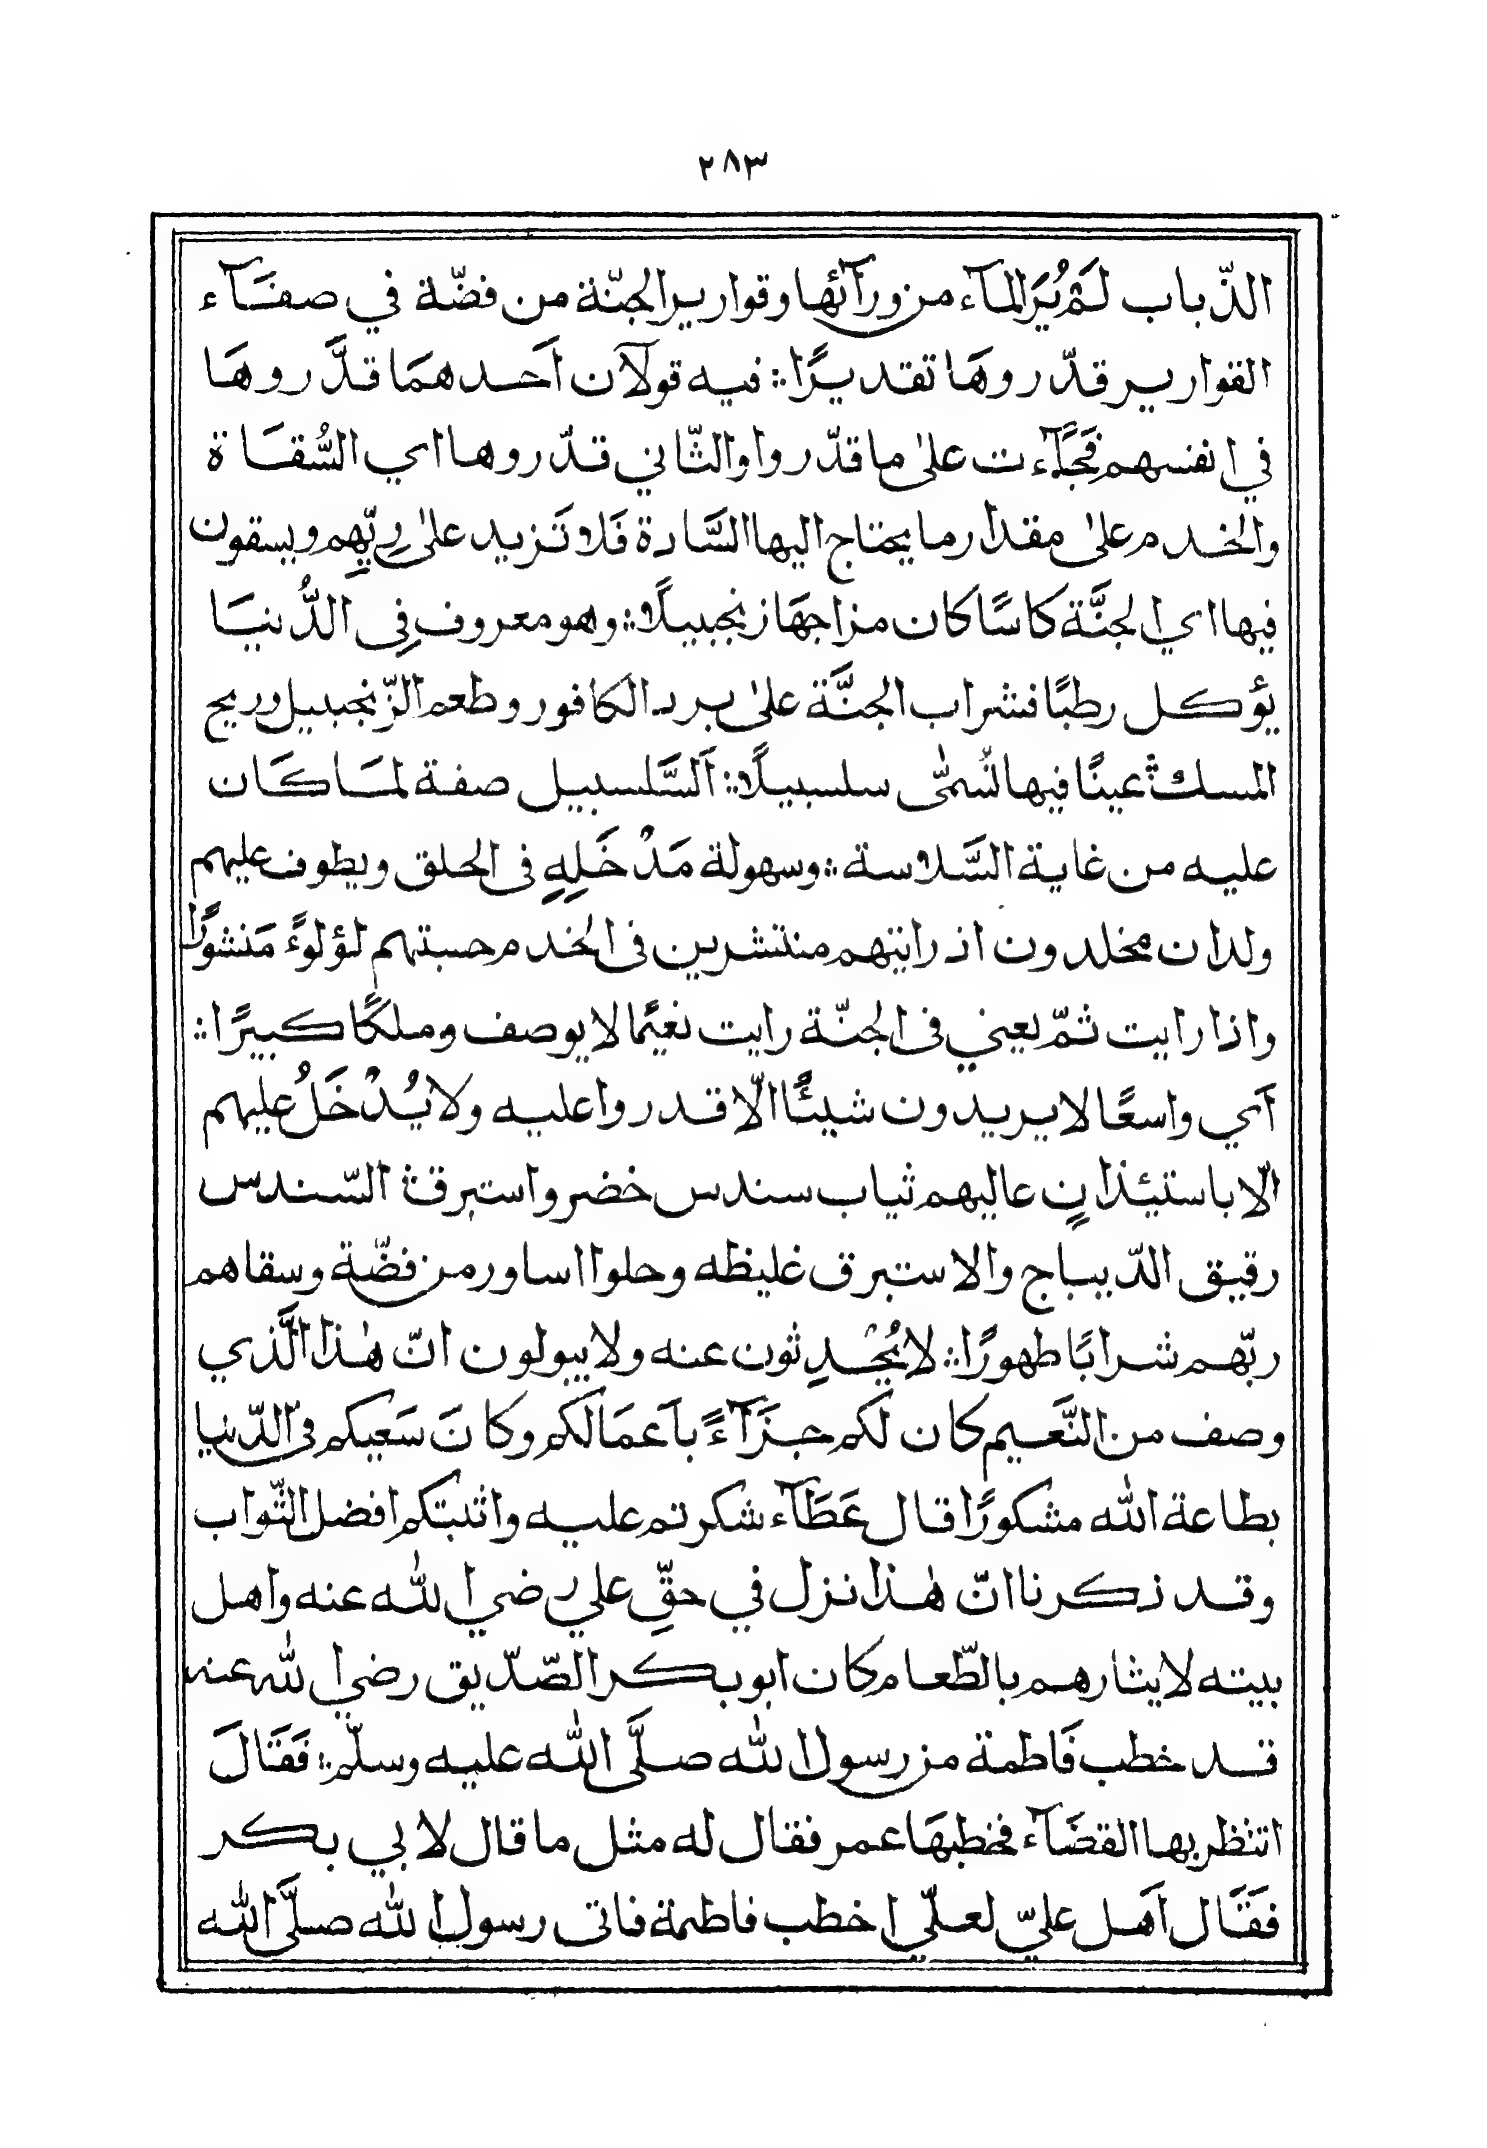 ٢٨٣
الذّباب لَمْ يُرَ المآء من ورآئها وقوارير الجنّة من فضّة في صفَآء
القوارير قدّروهَا تقديرًا ؞ فيه قولآن اَحدهمَا قدَّروهَا
في انفسهم فجَآءت علىٰ ما قدّروا والثّاني قدّروها اي السُّقَاة
والخدم علىٰ مقدار ما يحتاج اليها السَّادة فَلا تَزيد علىٰ رِيّهِم ويسقون
فيها اي الجنَّة كاسًا كان مزاجهَا زنجبيلًا ؞ وهو معروف فِى الدُّنيَا
يؤكل رطبًا فشراب الجنَّة علىٰ برد الكافور وطعم الزّنجبيل وريح
المسك ؞ عينًا فيها تُسمّٰى سلسبيلًا ؞ اَلسَّلسبيل صفة لمَا كَان
عليه من غاية السَّلاسة ؞ وسهولة مَدْخَلِهِ فى الحلق ويطوف عليهم
ولدان مخلدون اذ رايتهم منتشرين فى الخدم حسبتهم لؤلوءً مَنشورًا
واذا رايت ثمّ يعني فى الجنّة رايت نعيمًا لا يوصف وملكًا كبيرًا ؞
اَي واسعًا لا يريدون شيئًا الّا قدروا عليه ولا يُدْخَلُ عليهم
الّا باستيئذانٍ عاليهم ثياب سندس خضر واستبرق ؞ السّندس
رقيق الدّيباج والاستبرق غليظه وحلوا اساور من فضّة وسقاهم
ربّهم شرابًا طهورًا ؞ لا يُحْدِثون عنه ولا يبولون انّ هٰذا الَّذي
وصف من النَّعيم كان لكم جزَآءً باَعمَالكم وكانَ سَعيكم فى الدّنيا
بطاعة الله مشكورًا قال عَطَآء شكرتم عليه واثبتكم افضل الثّواب
وقد ذكرنا انّ هٰذا نزل في حقّ علي رضي الله عنه واهل
بيته لايثارهم بالطّعام كان ابو بكر الصّدّيق رضي الله عنه
قد خطب فَاطمة من رسول الله صلَّى الله عليه وسلّم ؞ فَقَالَ
انتظر بها القضَآء فخطبهَا عمر فقال له مثل ما قال لابي بكر
فَقَال اَهل عليّ لعلّي اخطب فاطمة فاتى رسول الله صلَّى الله